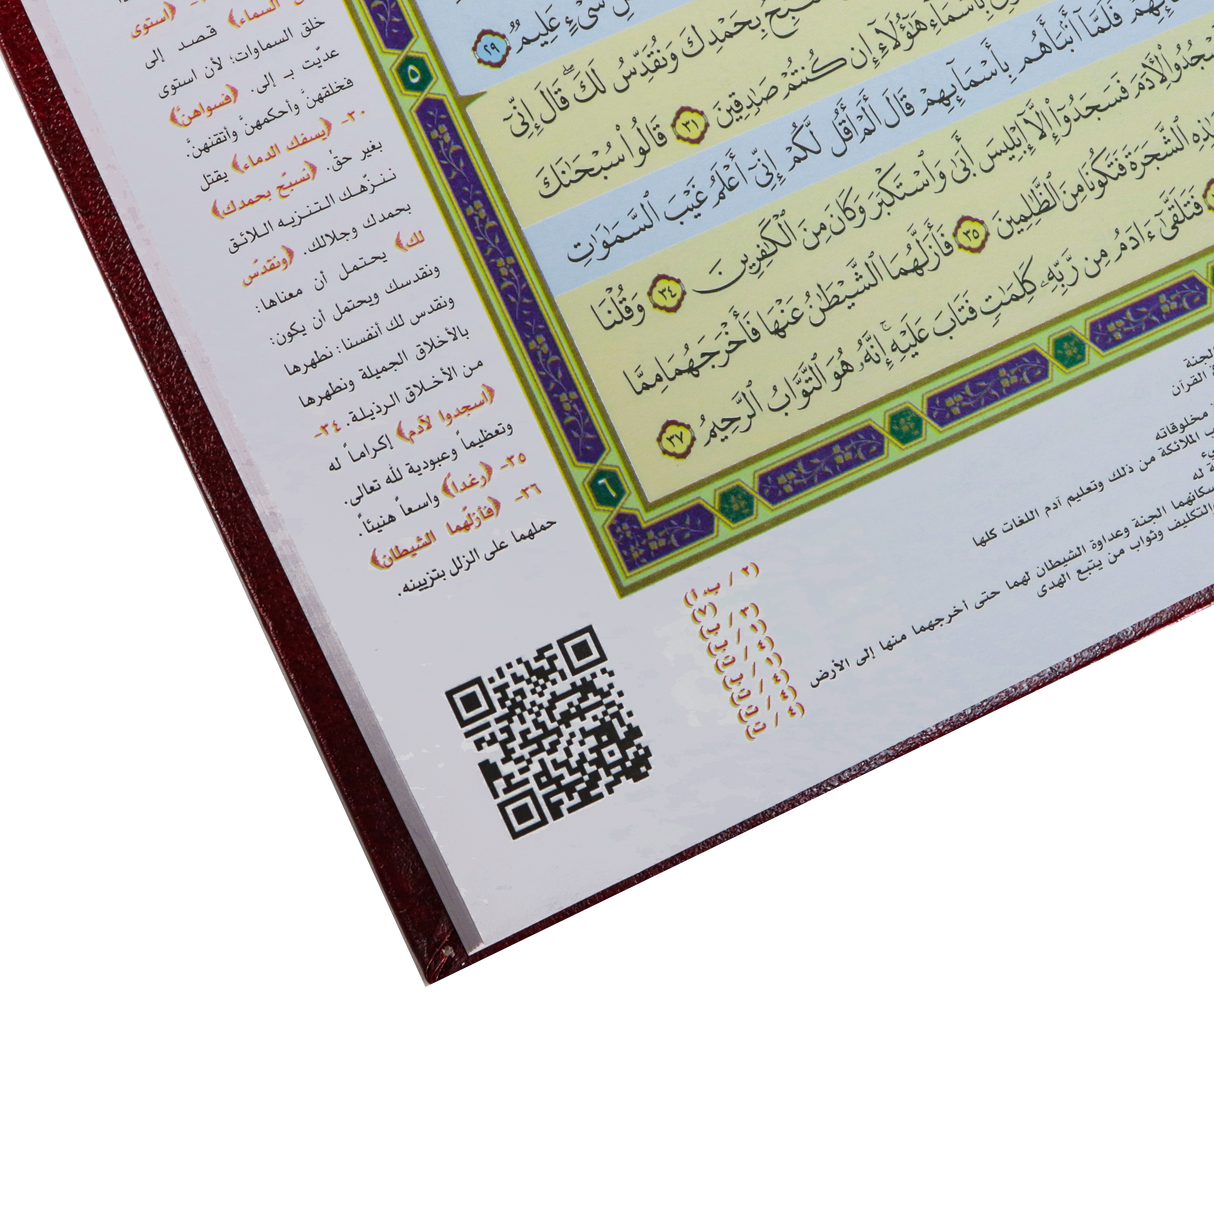 شَيْءٍ عَلِيمٌ ٢٩
نُسَبِّحُ بِحَمْدِكَ وَنُقَدِّسُ لَكَ قَالَ إِنِّي
بِأَسْمَاءِ هَٰؤُلَاءِ إِن كُنتُمْ صَادِقِينَ ٣١ قَالُوا سُبْحَانَكَ
فَلَمَّا أَنبَأَهُم بِأَسْمَائِهِمْ قَالَ أَلَمْ أَقُل لَّكُمْ إِنِّي أَعْلَمُ غَيْبَ السَّمَاوَاتِ
لِآدَمَ فَسَجَدُوا إِلَّا إِبْلِيسَ أَبَىٰ وَاسْتَكْبَرَ وَكَانَ مِنَ الْكَافِرِينَ ٣٤ وَقُلْنَا
الشَّجَرَةَ فَتَكُونَا مِنَ الظَّالِمِينَ ٣٥ فَأَزَلَّهُمَا الشَّيْطَانُ عَنْهَا فَأَخْرَجَهُمَا مِمَّا
فَتَلَقَّىٰ آدَمُ مِن رَّبِّهِ كَلِمَاتٍ فَتَابَ عَلَيْهِ إِنَّهُ هُوَ التَّوَّابُ الرَّحِيمُ ٣٧
٥
٦
﴿استوى
السماء﴾ قصد إلى
خلق السماوات؛ لأن استوى
عديّت بـ إلى. ﴿فسواهن﴾
فخلقهنّ وأحكمهنّ وأتقنهنّ.
٣٠- ﴿يسفك الدماء﴾ يقتل
بغير حقّ. ﴿نسبّح بحمدك﴾
ننـزّهك التنزيه اللائق
بحمدك وجلالك. ﴿ونقدّس
لك﴾ يحتمل أن معناها:
ونقدسك ويحتمل أن يكون:
ونقدس لك أنفسنا: نطهرها
بالأخلاق الجميلة ونطهرها
من الأخلاق الرذيلة. ٣٤-
﴿اسجدوا لآدم﴾ إكراماً له
وتعظيماً وعبودية لله تعالى.
٣٥- ﴿رغداً﴾ واسعاً هنيئاً.
٣٦- ﴿فأزلّهما الشيطان﴾
حملهما على الزلل بتزيينه.
الجنة
القرآن
مخلوقاته
الملائكة من ذلك وتعليم آدم اللغات كلها
له
سكانهما الجنة وعداوة الشيطان لهما حتى أخرجهما منها إلى الأرض
والتكليف وثواب من يتبع الهدى